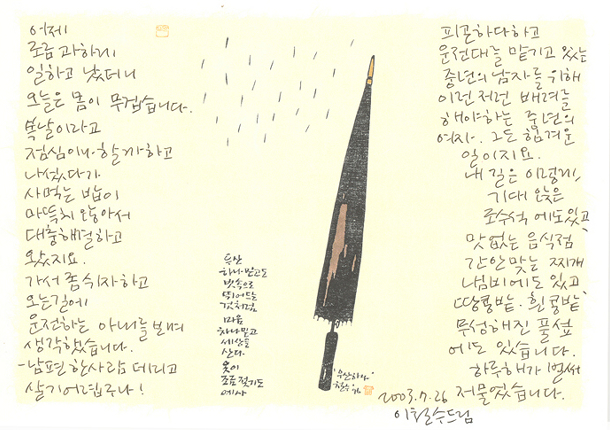 어제
조금 과하게
일하고 났더니
오늘은 몸이 무겁습니다.
복날이라고
점심이나 할까하고
나섰다가
사먹는 밥이
마뜩치 않아서
대충해결하고
왔지요.
가서 좀 쉬자하고
오는길에
운전하는 아내를 보며
생각했습니다.
-남편 한사람 데리고
살기 어렵구나!
우산
하나 받고도
빗속으로
뛰어드는
것처럼
마음
하나 믿고
세상을
산다.
옷이
조금 젖기도
하면서
'우산하나'
철수
피곤하다하고
운전대를 맡기고 있는
중년의 남자를 위해
이런저런 배려를
해야하는 중년의
여자. 그도 힘겨운
일이지요.
내 길은 이렇게,
기대 앉은
조수석에도 있고,
맛없는 음식점
간 안맞는 찌개
냄비에도 있고
땅콩밭·흰콩밭
무성해진 풀섶
에도 있습니다.
하루해가 벌써
저물었습니다.
2003.7.26
이철수드림